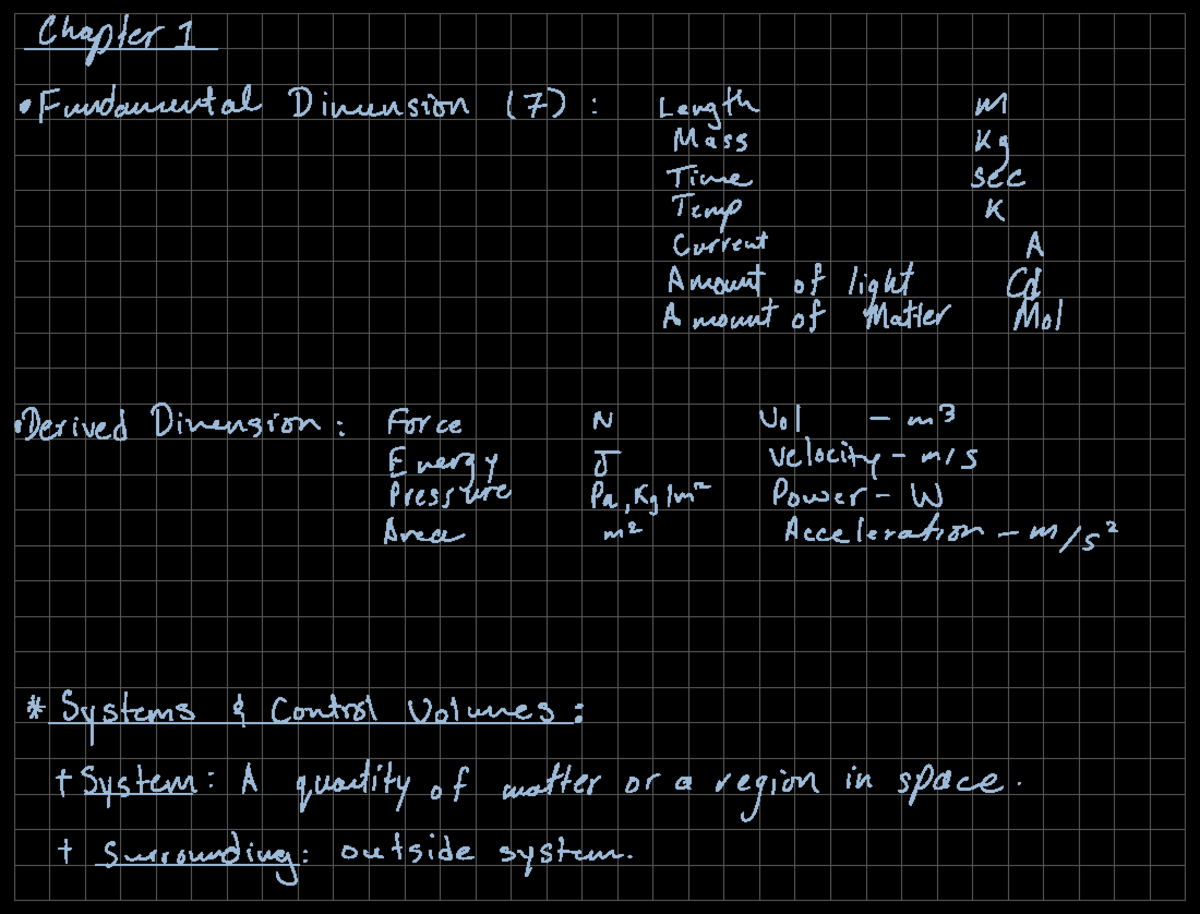 Chapter 1
• Fundamental Dimension (7) : Length m
Mass Kg
Time sec
Temp K
Current A
Amount of light Cd
Amount of Matter Mol
• Derived Dimension : Force N Vol - m³
Energy J Velocity - m/s
Pressure Pa, Kg/m² Power - W
Area m² Acceleration - m/s²
* Systems & Control Volumes :
+ System : A quantity of matter or a region in space.
+ Surrounding : outside system.